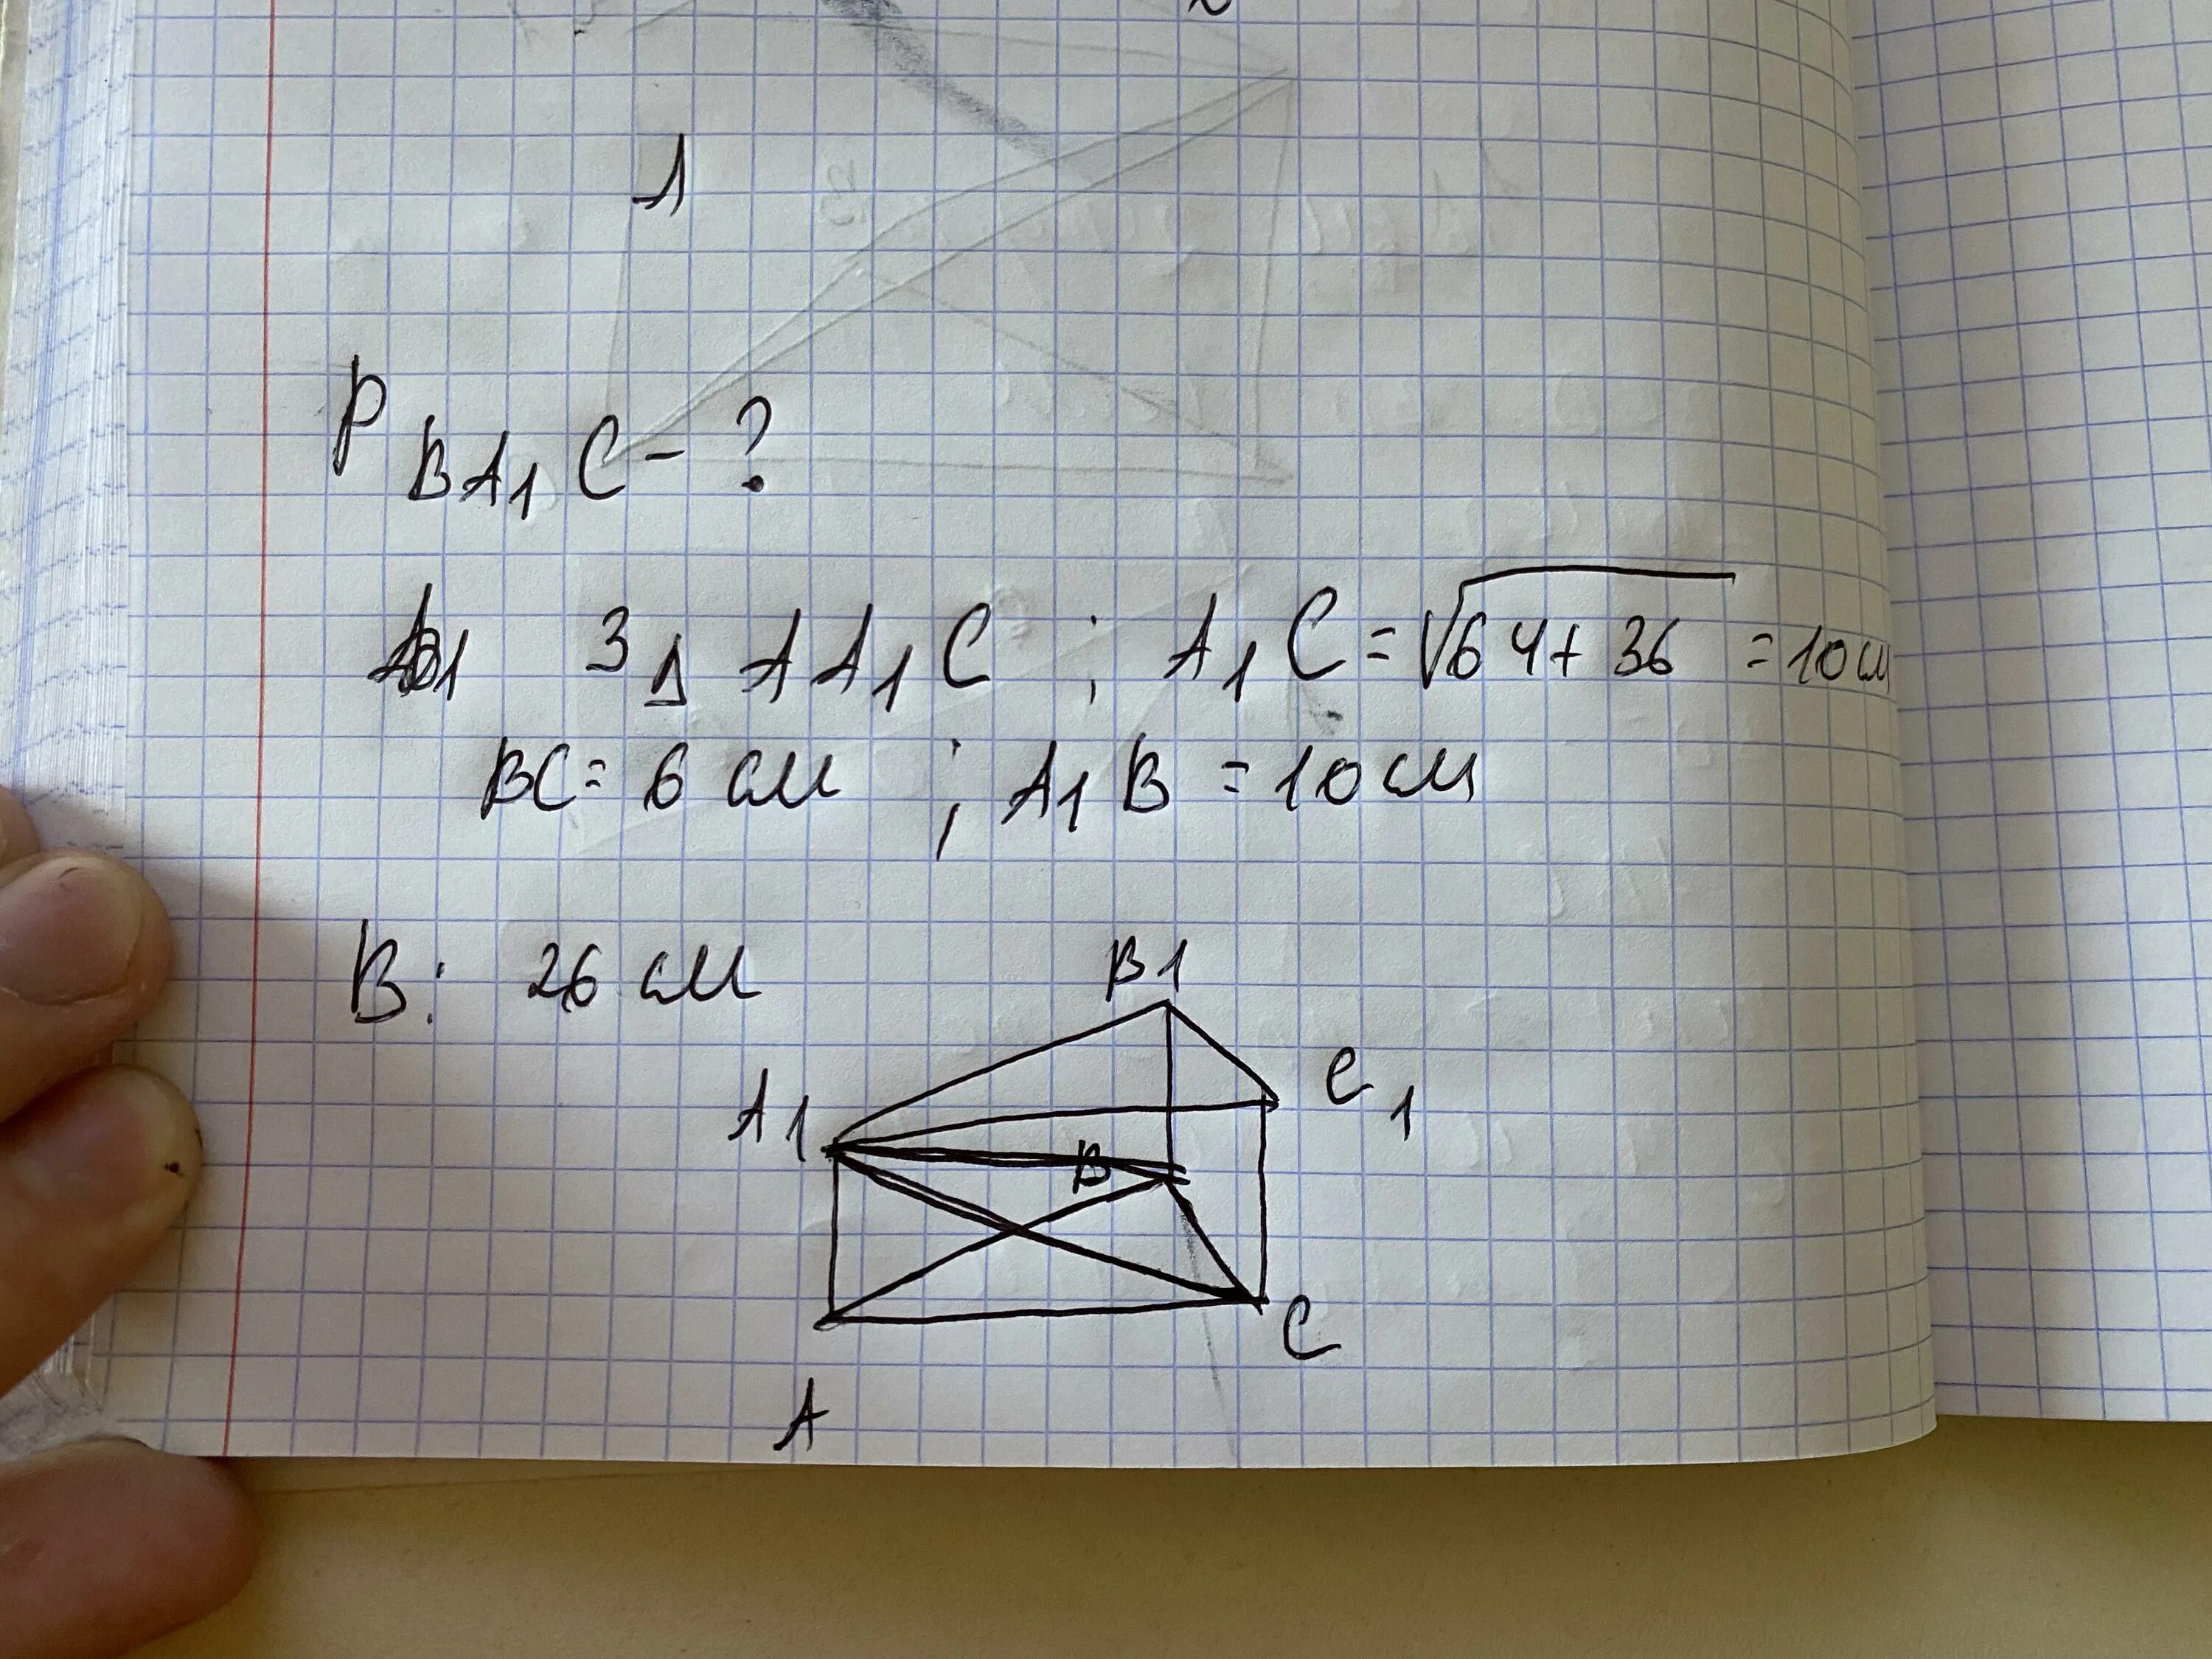 A
P BA1C - ?
З Δ AA1C ; A1C = √64+36 = 10см
BC = 6 см ; A1B = 10 см
В: 26 см
B1
C1
A1
B
C
A